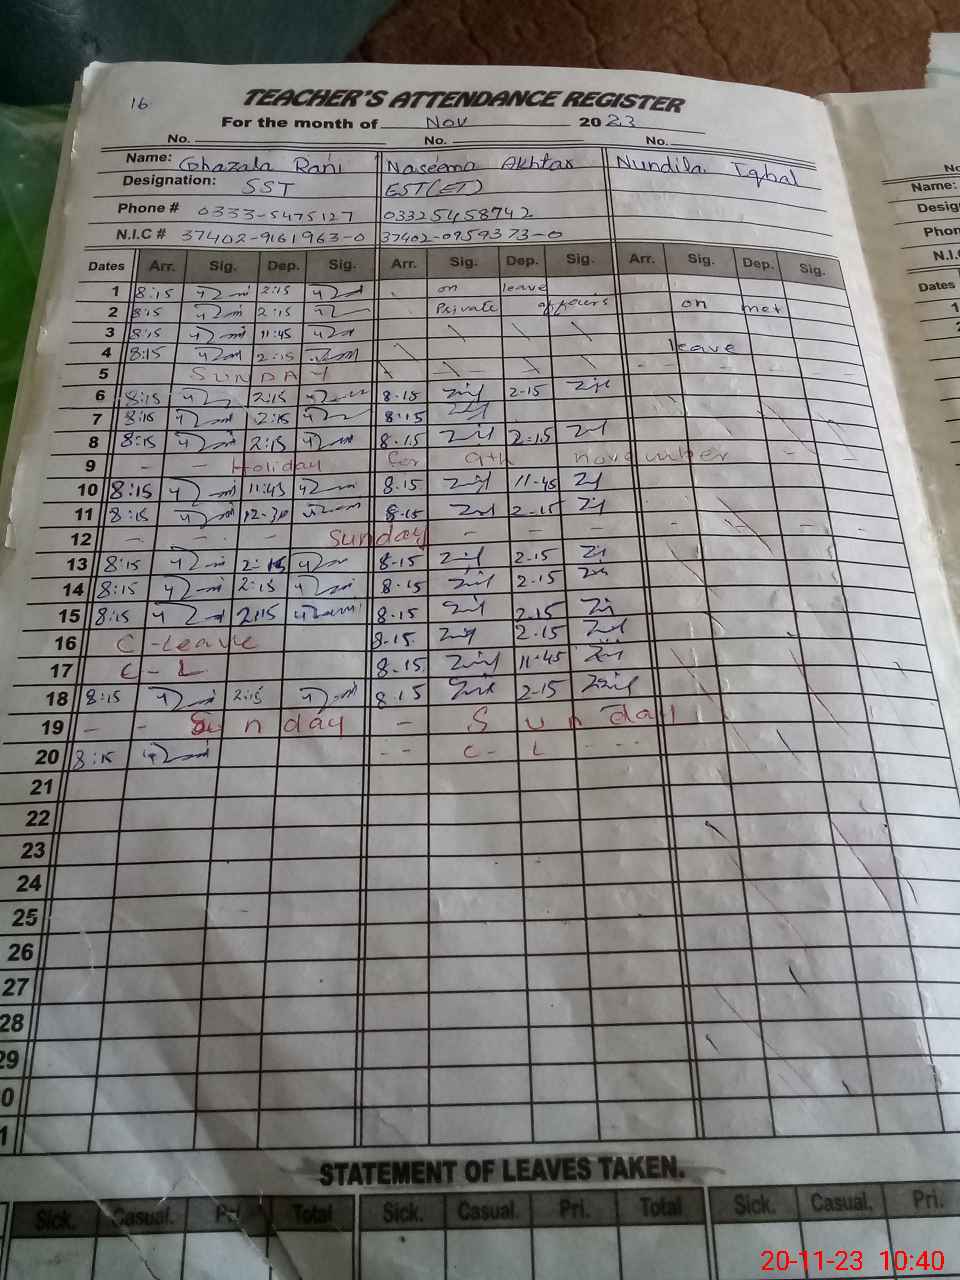 16
TEACHER'S ATTENDANCE REGISTER
For the month of Nov 2023
No. No. No.
Name: Ghazala Rani Naseema Akhtar Nundila Iqbal
Designation: SST EST(ET)
Phone # 0333-5475127 03325458742
N.I.C # 37402-9161963-0 37402-0959373-0
Dates Arr. Sig. Dep. Sig. Arr. Sig. Dep. Sig. Arr. Sig. Dep. Sig.
1 8:15 2:15 on leave
2 8:15 2:15 Private affairs on met
3 8:15 11:45
4 8:15 2:15 leave
5 SUNDAY
6 8:15 2:15 8.15 2-15
7 8:15 2:15 8:15
8 8:15 2:15 8.15 2:15
9 - - Holiday for 9th november -
10 8:15 11:43 8.15 11-45
11 8:15 12-30 8.15 2-15
12 - - - Sunday - - - -
13 8:15 2:15 8.15 2.15
14 8:15 2:15 8.15 2.15
15 8:15 2:15 8.15 2.15
16 C-Leave 8.15. 2.15
17 C-L 8.15. 11-45
18 8:15 2:15 8.15 2-15
19 - - Sunday - Sunday
20 8:15 -- C-L ---
21
22
23
24
25
26
27
28
29
0
1
STATEMENT OF LEAVES TAKEN.
Sick. Casual. Pri. Total Sick. Casual. Pri. Total Sick. Casual. Pri.
Name:
Desig
Phon
N.I.
Dates
1
20-11-23 10:40